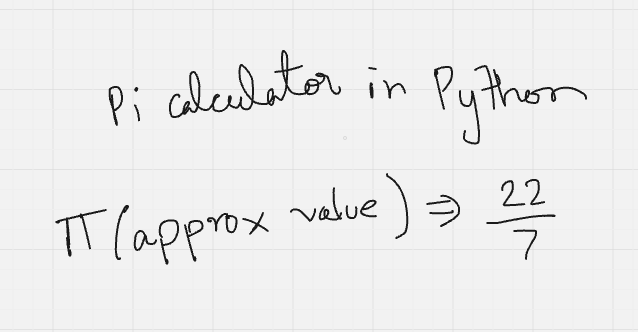 Pi calculator in Python
π (approx value) ⇒ 22/7